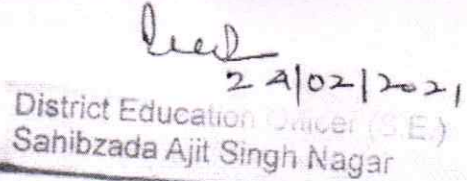 24/02/2021
District Education Officer (S.E.)
Sahibzada Ajit Singh Nagar